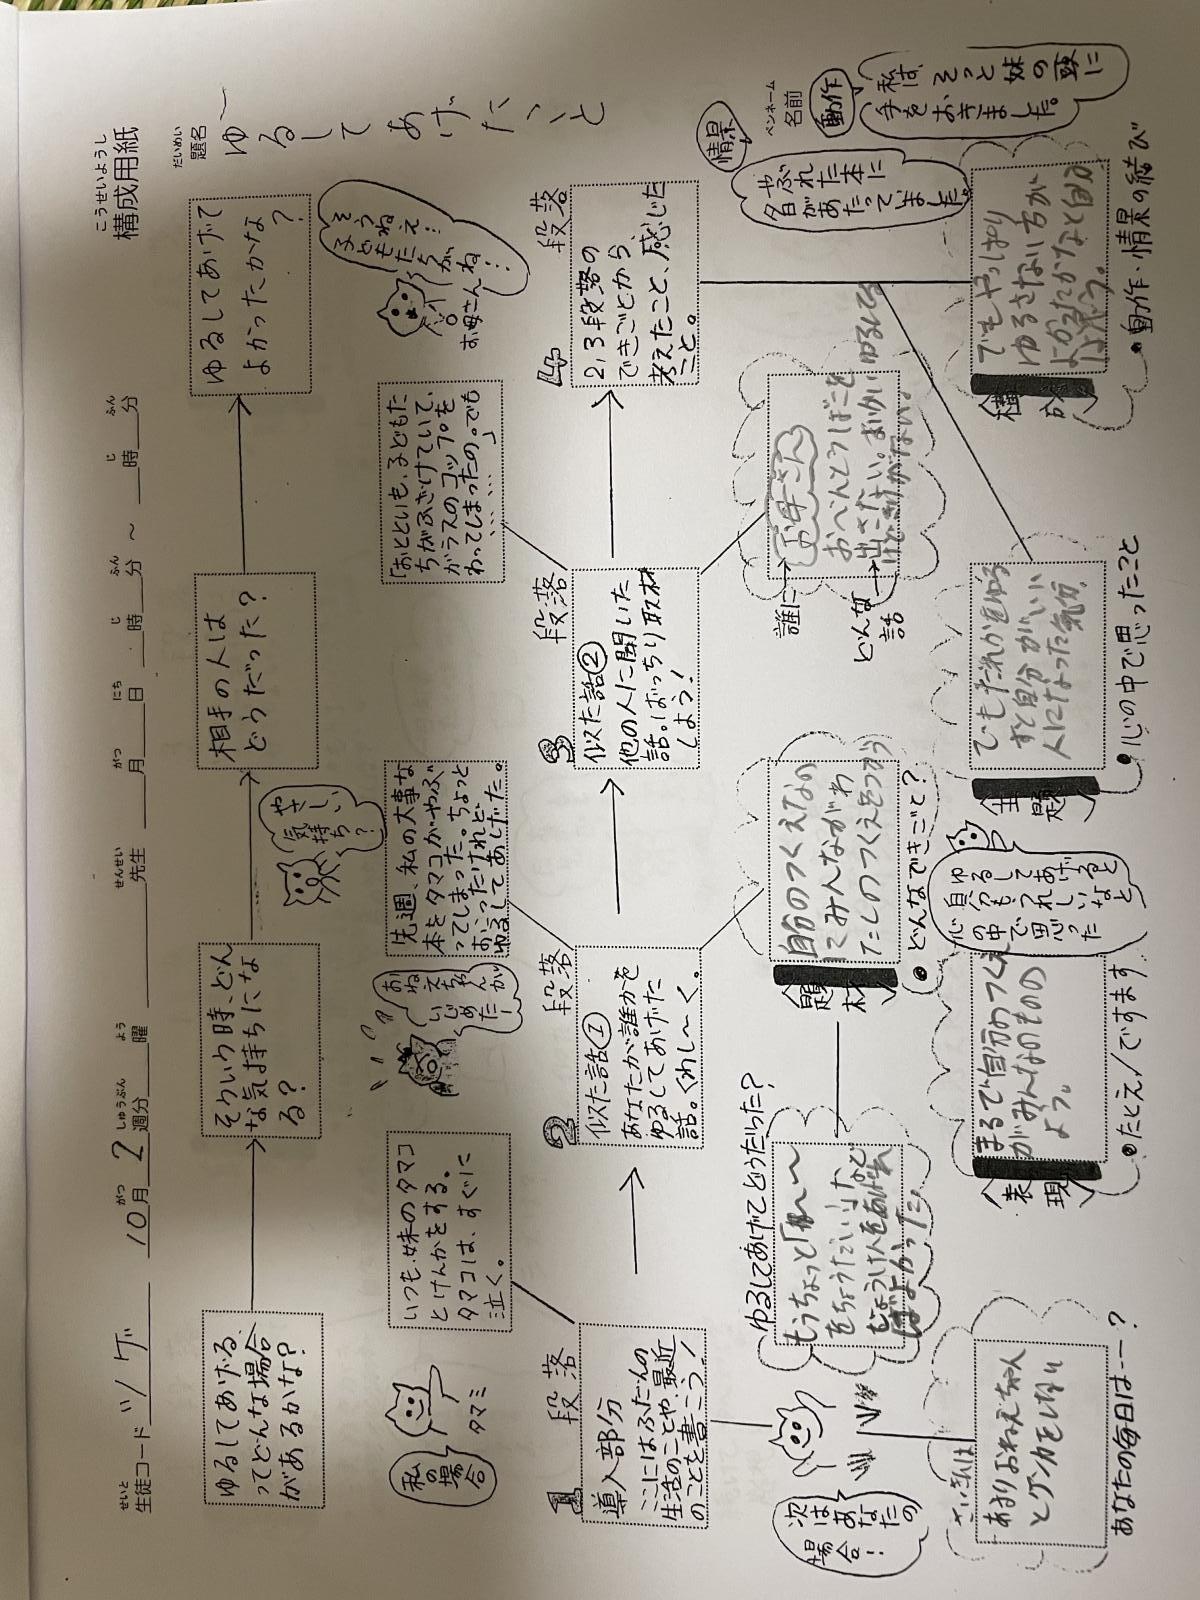 こうせいようし
構成用紙
せいと
生徒コード い/ゲ 10月2週分 曜 先生 月 日 時 分 ～ 時 分
がつ しゅうぶん よう せんせい がつ にち じ ふん じ ふん
だいめい
題名
ゆるしてあげたいこと
ペンネーム
名前
ゆるしてあげる
ってどんな場合
があるかな?
そういう時、どん
な気持ちにな
る?
やさしい
気持ち?
相手の人は
どうだった?
ゆるしてあげて
よかったかな
?
私の
場合
タマミ
いつも、妹のタマコ
とけんかをする。
タマコは、すぐに
泣く。
おねえちゃんが
いじめたー!
先週、私の大事な
本をタマコがやぶ
ってしまった。ちょっと
おこったけれど
ゆるしてあげた。
「おとといも、子どもた
ちがふざけていて、
ガラスのコップを
わってしまったの。でも
……」
そうねえ!
子どもたちがね!
お母さん
1段落
導入部分
ここにはふだんの
生活のことや、最近
のことを書こう!
2段落
似た話①
あなたが誰かを
ゆるしてあげた
話。くわし〜く。
3段落
似た話②
他の人に聞いた
話。ばっちり取材
しよう!
4段落
2,3段落の
できごとから、
考えたこと、感じた
こと。
次はあなたの
場合!
さいきんは
あまりおねえちゃん
とケンカをしない
あなたの毎日は…?
ゆるしてあげてどうだった?
もうちょっと
題材
自分のつくえなの
にみんながわ
たしのつくえをつかう
どんなできごと?
誰に→
お母さん
どんな→
話
表現
まるで自分のつくえ
がみんなのもの
よう。
たとえ/ですます
主題
人になった気分
心の中で思ったこと
ゆるしてあげると
自分もうれしいなと
心の中で思った
でもやっぱり
ゆるさない方が
動作・情景の結び
情景
やぶれた本に
名があたっていました。
動作
私は、そっと妹の頭に
手をおきました。